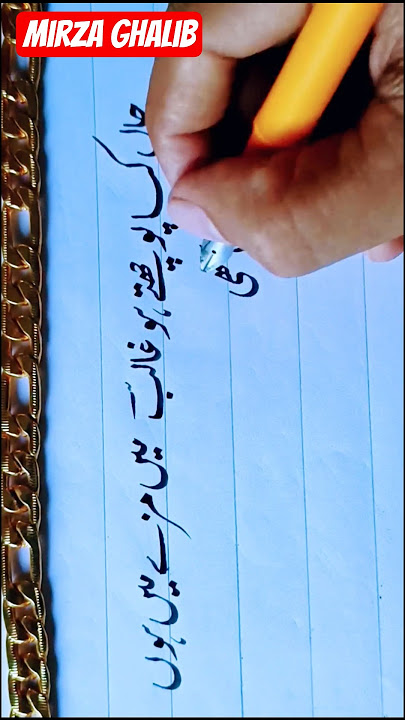 MIRZA GHALIB
حال کیا پوچھتے ہو غالبؔ میں مزے میں ہوں